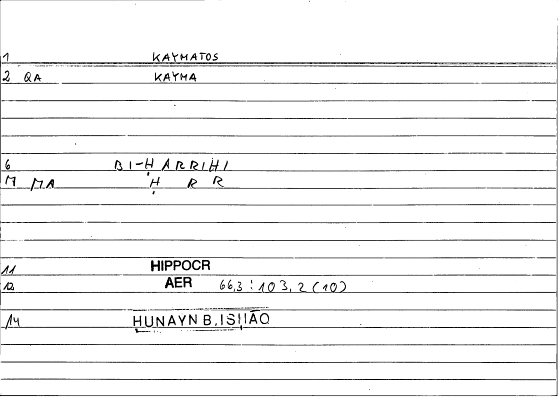 1 KAYMATOS
2 QA KAYMA
6 BI-ḤARRIHI
M MA Ḥ R R
11 HIPPOCR
12 AER 66,3 : 103,2 (10)
14 HUNAYN B. ISḤĀQ